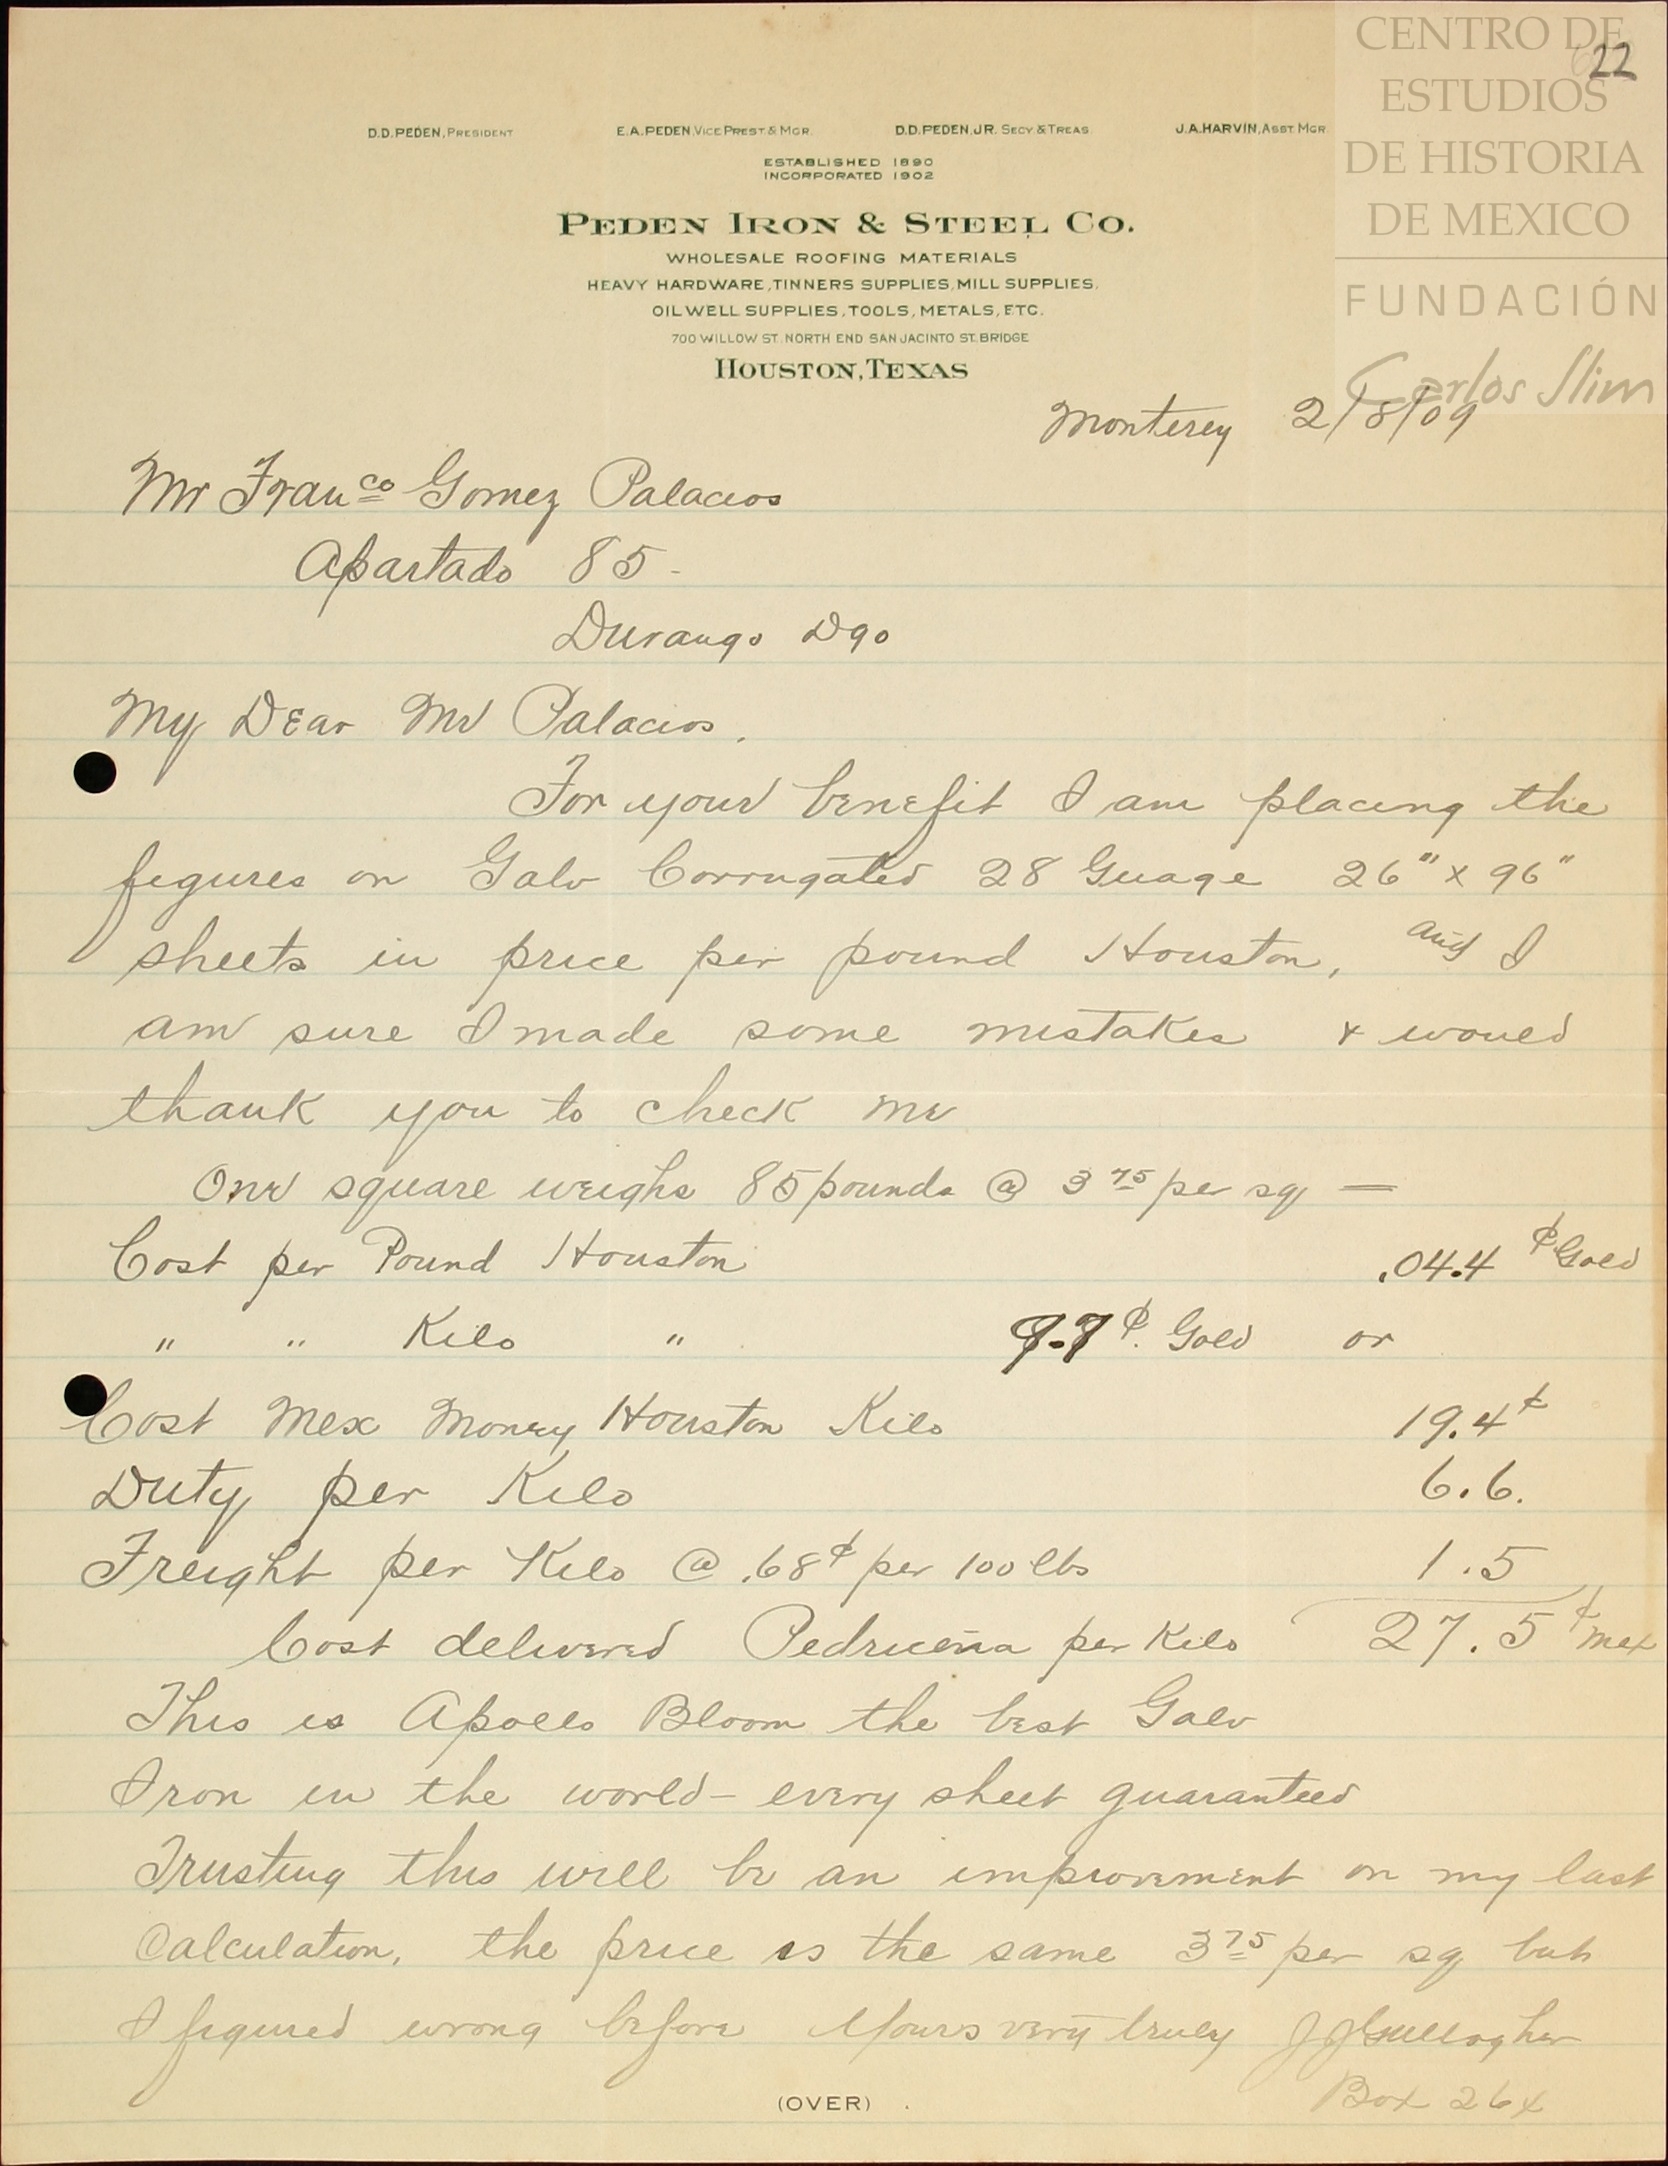 CENTRO DE
ESTUDIOS
DE HISTORIA
DE MEXICO
FUNDACIÓN
Carlos Slim
22
D.D. PEDEN, PRESIDENT E.A. PEDEN, VICE PREST & MGR. D.D. PEDEN, JR. SECY & TREAS J.A. HARVIN, ASST MGR
ESTABLISHED 1890
INCORPORATED 1902
PEDEN IRON & STEEL CO.
WHOLESALE ROOFING MATERIALS
HEAVY HARDWARE, TINNERS SUPPLIES, MILL SUPPLIES,
OIL WELL SUPPLIES, TOOLS, METALS, ETC.
700 WILLOW ST. NORTH END SAN JACINTO ST. BRIDGE
HOUSTON, TEXAS
Monterey 2/8/09
Mr Franco Gomez Palacios
Apartado 85 -
Durango Dgo
My Dear Mr Palacios.
For your benefit I am placing the
figures on Galv Corrugated 28 Guage 26" x 96"
sheets in price per pound Houston, and I
am sure I made some mistakes & would
thank you to check me
One square weighs 85 pounds @ 3 75 per sq —
Cost per Pound Houston .04.4 ¢ Gold
" " Kilo " 9.7 ¢. Gold or
Cost Mex Money Houston Kilo 19.4¢
Duty per Kilo 6.6.
Freight per Kilo @ .68¢ per 100 lbs 1.5
Cost delivered Pedriceña per Kilo 27.5 ¢ Mex
This is Apollo Bloom the best Galv
Iron in the world – every sheet guaranteed
Trusting this will be an improvement on my last
Calculation, the price is the same 3 75 per sq but
I figured wrong before Yours very truly J J Gullagher
(OVER) Box 264